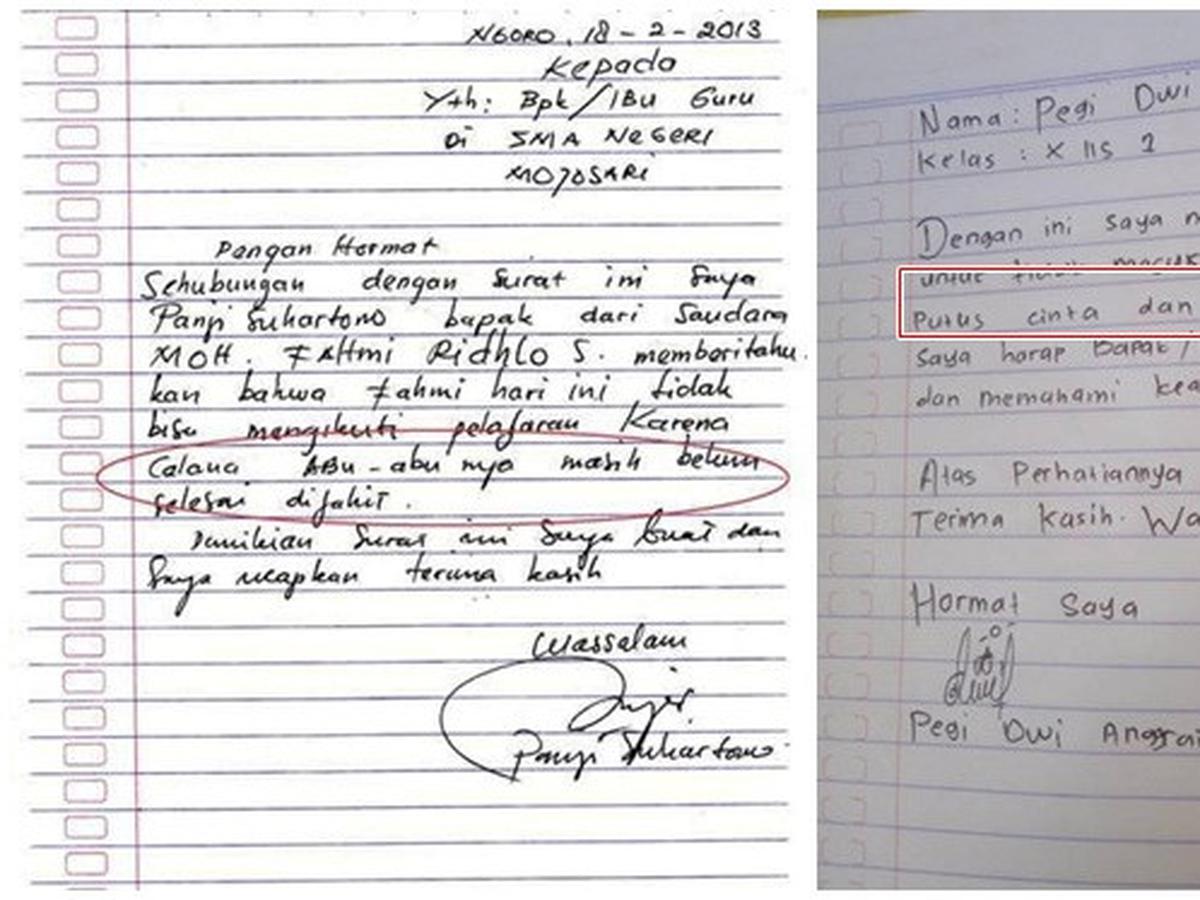 NGORO, 18 - 2 - 2013
Kepada
Yth: Bpk/IBu Guru
Di SMA NEGERI
MOJOSARI
Dengan Hormat
Sehubungan dengan surat ini Saya
Panji Suhartono bapak dari Saudara
MOH. FAHmi RidHLo S. memberitahu
kan bahwa Fahmi hari ini tidak
bisa mengikuti pelajaran Karena
Calana ABu-abu nya masih belum
selesai dijahit.
Demikian Surat ini Saya buat dan
Saya ucapkan terima kasih
Wassalam
Panji Suhartono
Nama : Pegi Dwi
Kelas : X IIS 1
Dengan ini saya m
untuk tidak masuk
Putus cinta dan
Saya harap Bapak/
dan memahami kea
Atas Perhatiannya
Terima Kasih. Wa
Hormat Saya
Pegi Dwi Anggrai